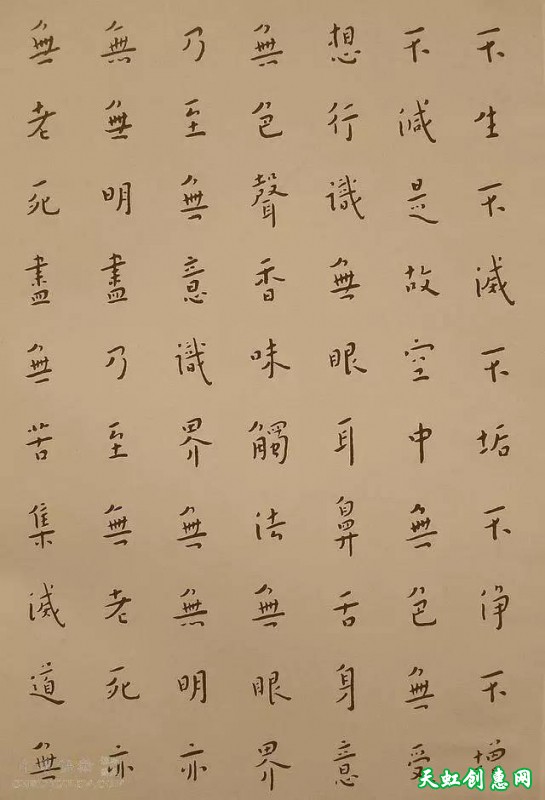 不生不滅不垢不淨不增
不減是故空中無色無受
想行識無眼耳鼻舌身意
無色聲香味觸法無眼界
乃至無意識界無無明亦
無無明盡乃至無老死亦
無老死盡無苦集滅道無
天虹创意网